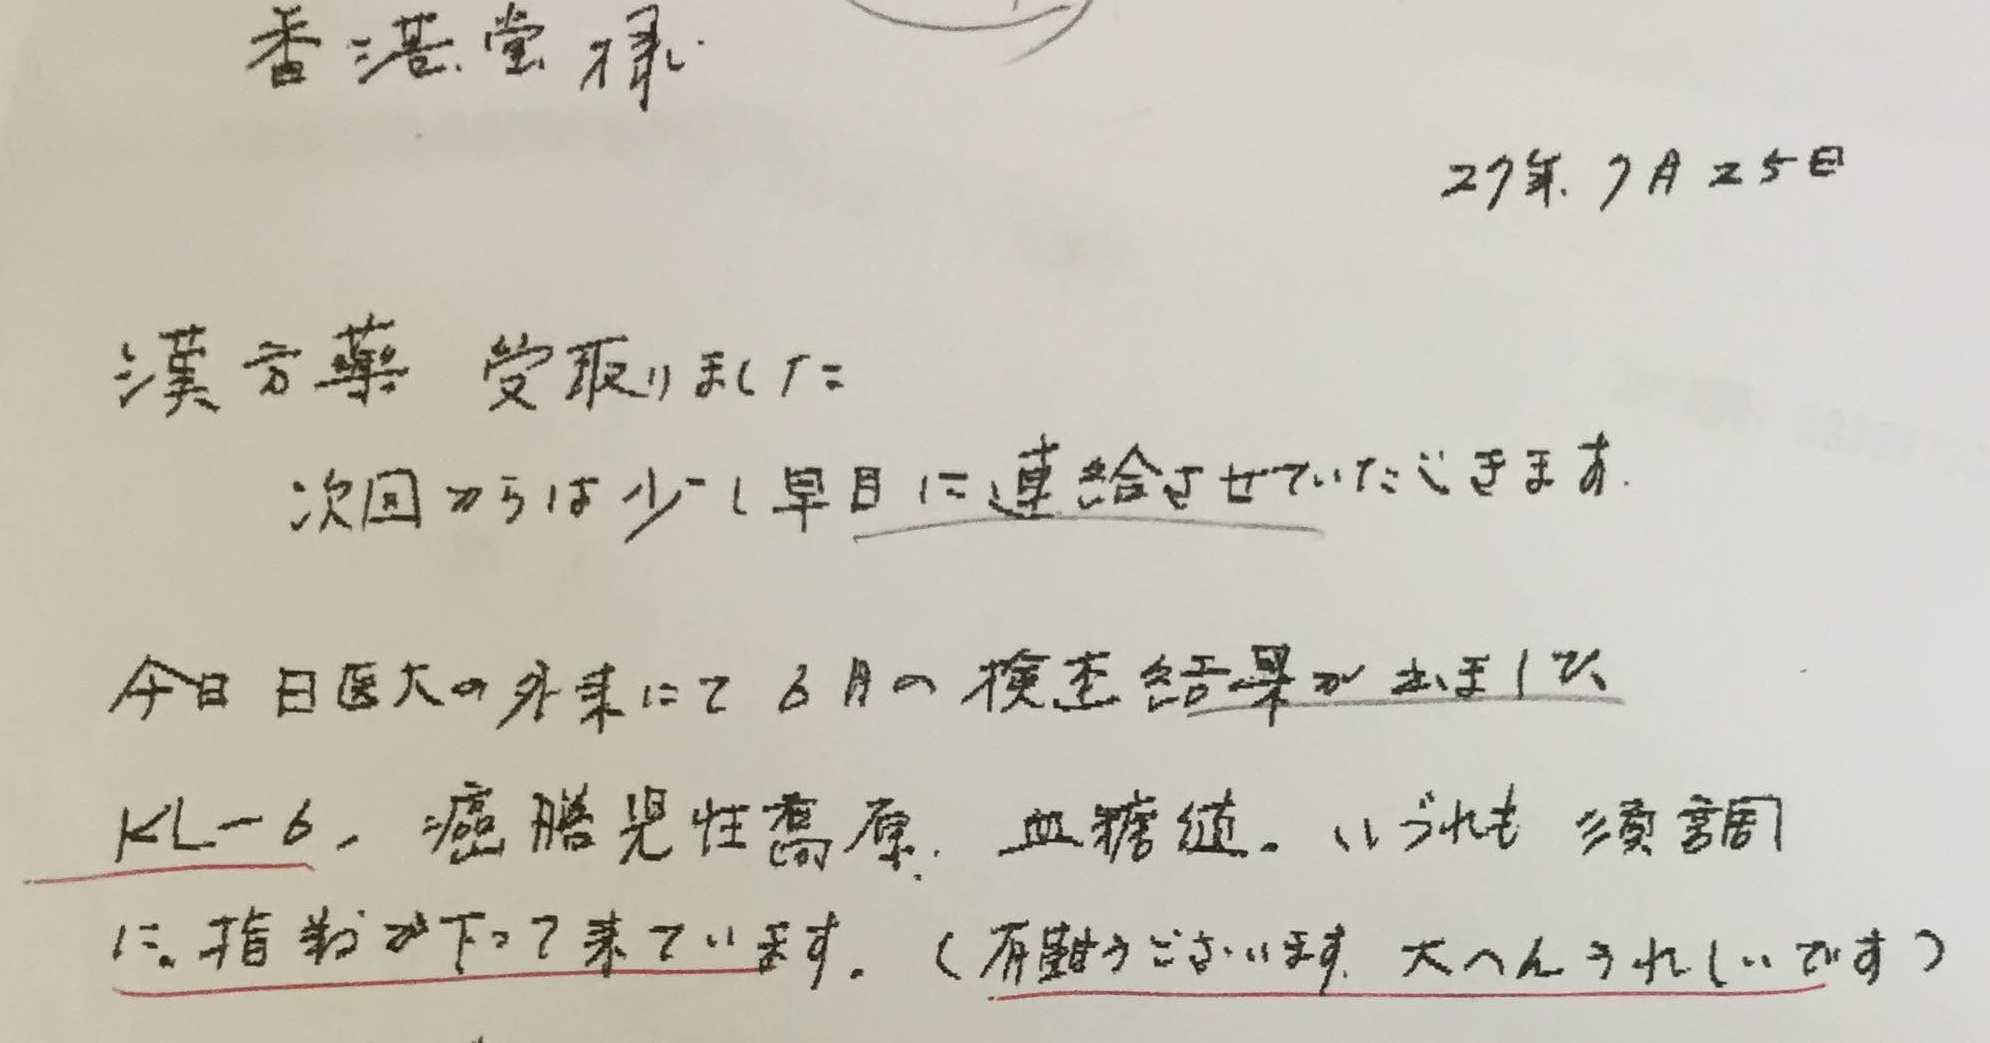 香港堂様
27年.7月25日
漢方薬 受取りました
次回からは少し早目に連絡させていただきます.
今日日医大の外来にて6月の検査結果が出まして、
KL-6、癌胎児性高原、血糖値。いづれも順調
に。指数が下って来ています。(有難うございます、大へんうれしいです)